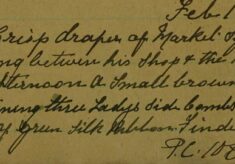 Feb 1
Crisp draper of Market
ng between his Shop & the
fternoon a Small brown
ning three Ladys Side Combs
of Green Silk Ribbon. Finde
P.C.